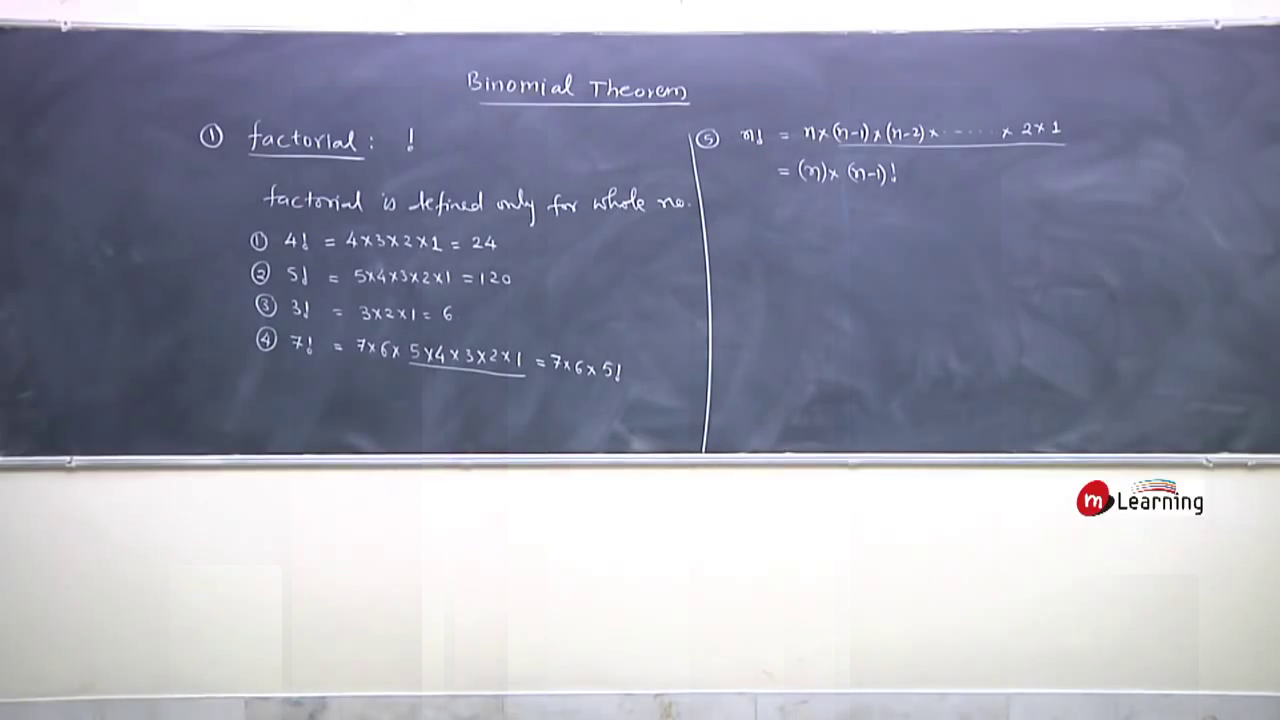 Binomial Theorem
① factorial : !
factorial is defined only for whole no.
① 4! = 4×3×2×1 = 24
② 5! = 5×4×3×2×1 = 120
③ 3! = 3×2×1 = 6
④ 7! = 7×6×5×4×3×2×1 = 7×6×5!
⑤ n! = n×(n-1)×(n-2)×......×2×1
= (n)×(n-1)!
m Learning